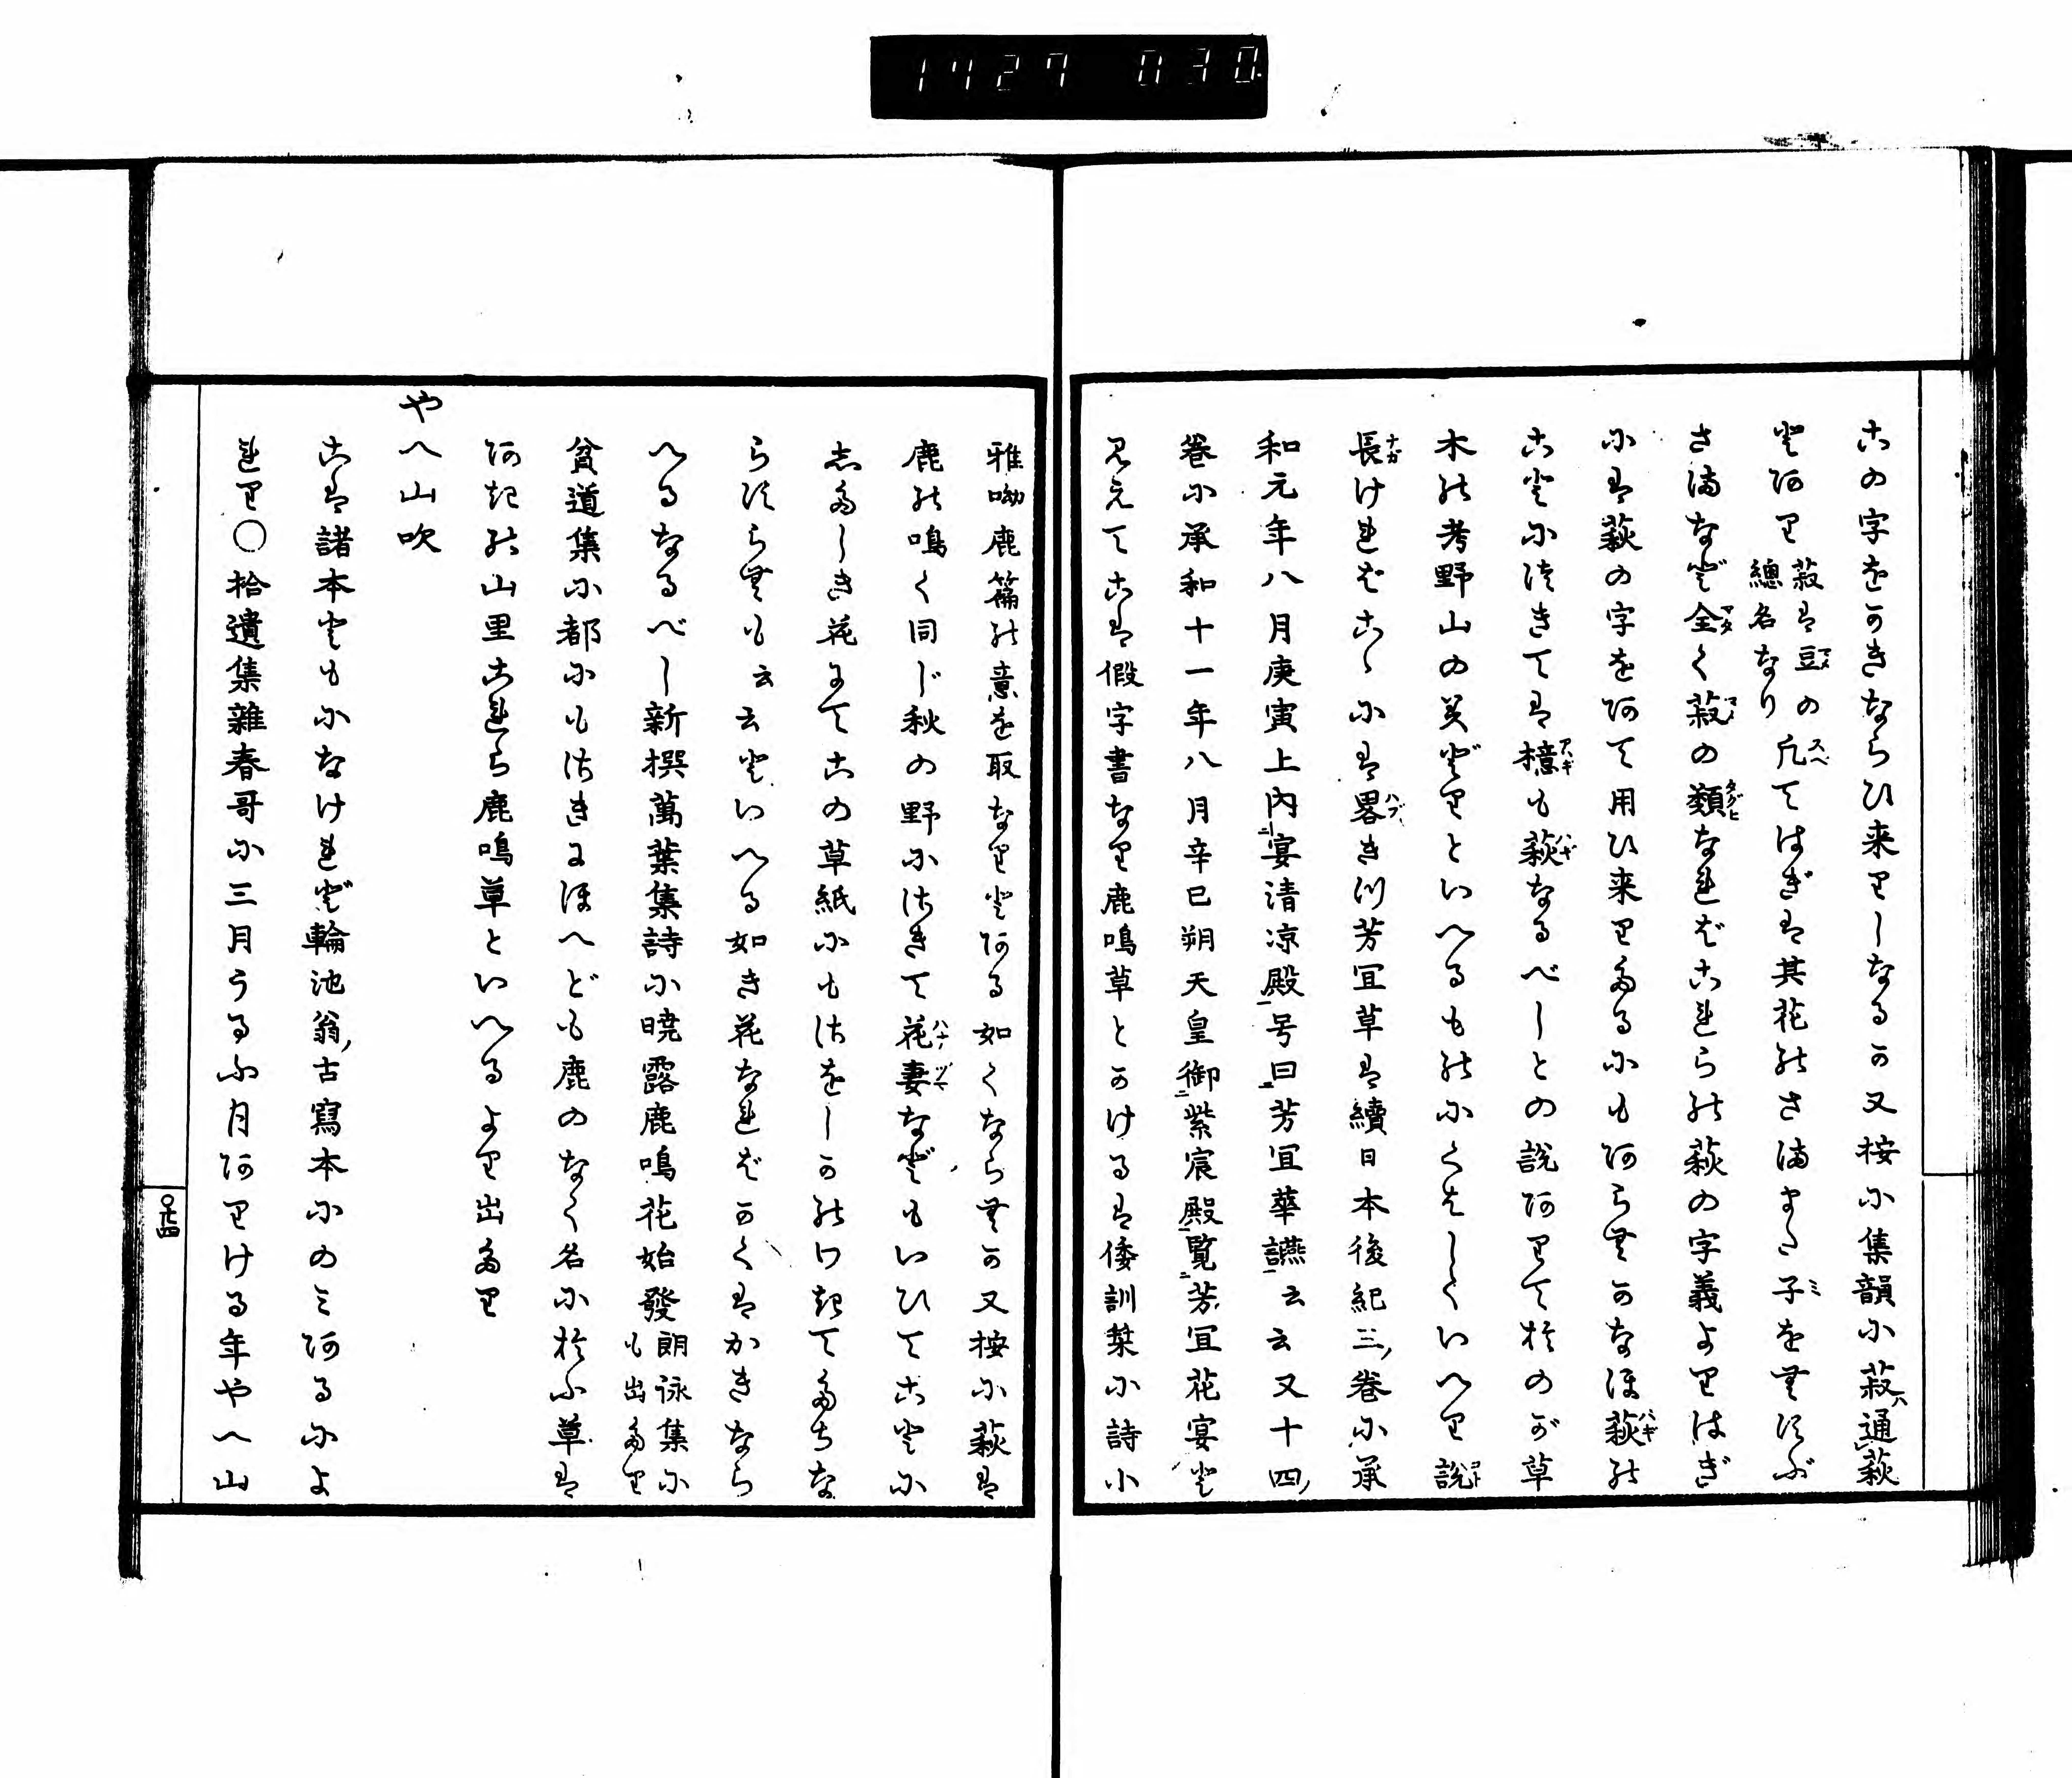 1427 030
この字をかきならひ来りしなるか又按に集韻に菽ハ通萩
とあり菽は豆の總名なり凡てはぎは其花のさままた子をむすぶ
さまなど全く菽の類なればこれらの萩の字義よりはぎ
には萩の字をあて用ひ来りたるにもあらむかなほ萩の
ことにつきては檍も萩なるべしとの説ありておのが草
木の考野山の美どりといへるものにくはしくいへり説
長ければこゝには畧きつ芳宜草は續日本後紀三巻に承
和元年八月庚寅上内宴清凉殿号曰芳宜華讌云云又十四
巻に承和十一年八月辛巳朔天皇御紫宸殿覧芳宜花宴と
見えてこは假字書なり鹿鳴草とかけるは倭訓栞に詩小
雅呦鹿篇の意を取なりとある如くならむか又按に萩は
鹿の鳴く同じ秋の野にさきて花妻などもいひてことに
したしき花にてこの草紙にもさをしかのわきてたちな
らすらむも云云といへる如き花なればかくはかきなら
へるなるべし新撰萬葉集詩小暁露鹿鳴花始發朗詠集にも出たり
貧道集に都にもさきにほへども鹿のなく名におふ草は
あきの山里これら鹿鳴草といへるより出たり
やへ山吹
こは諸本ともになけれど輪池翁古寫本にのミあるによ
れり○拾遺集雜春哥に三月うるふ月ありける年やへ山